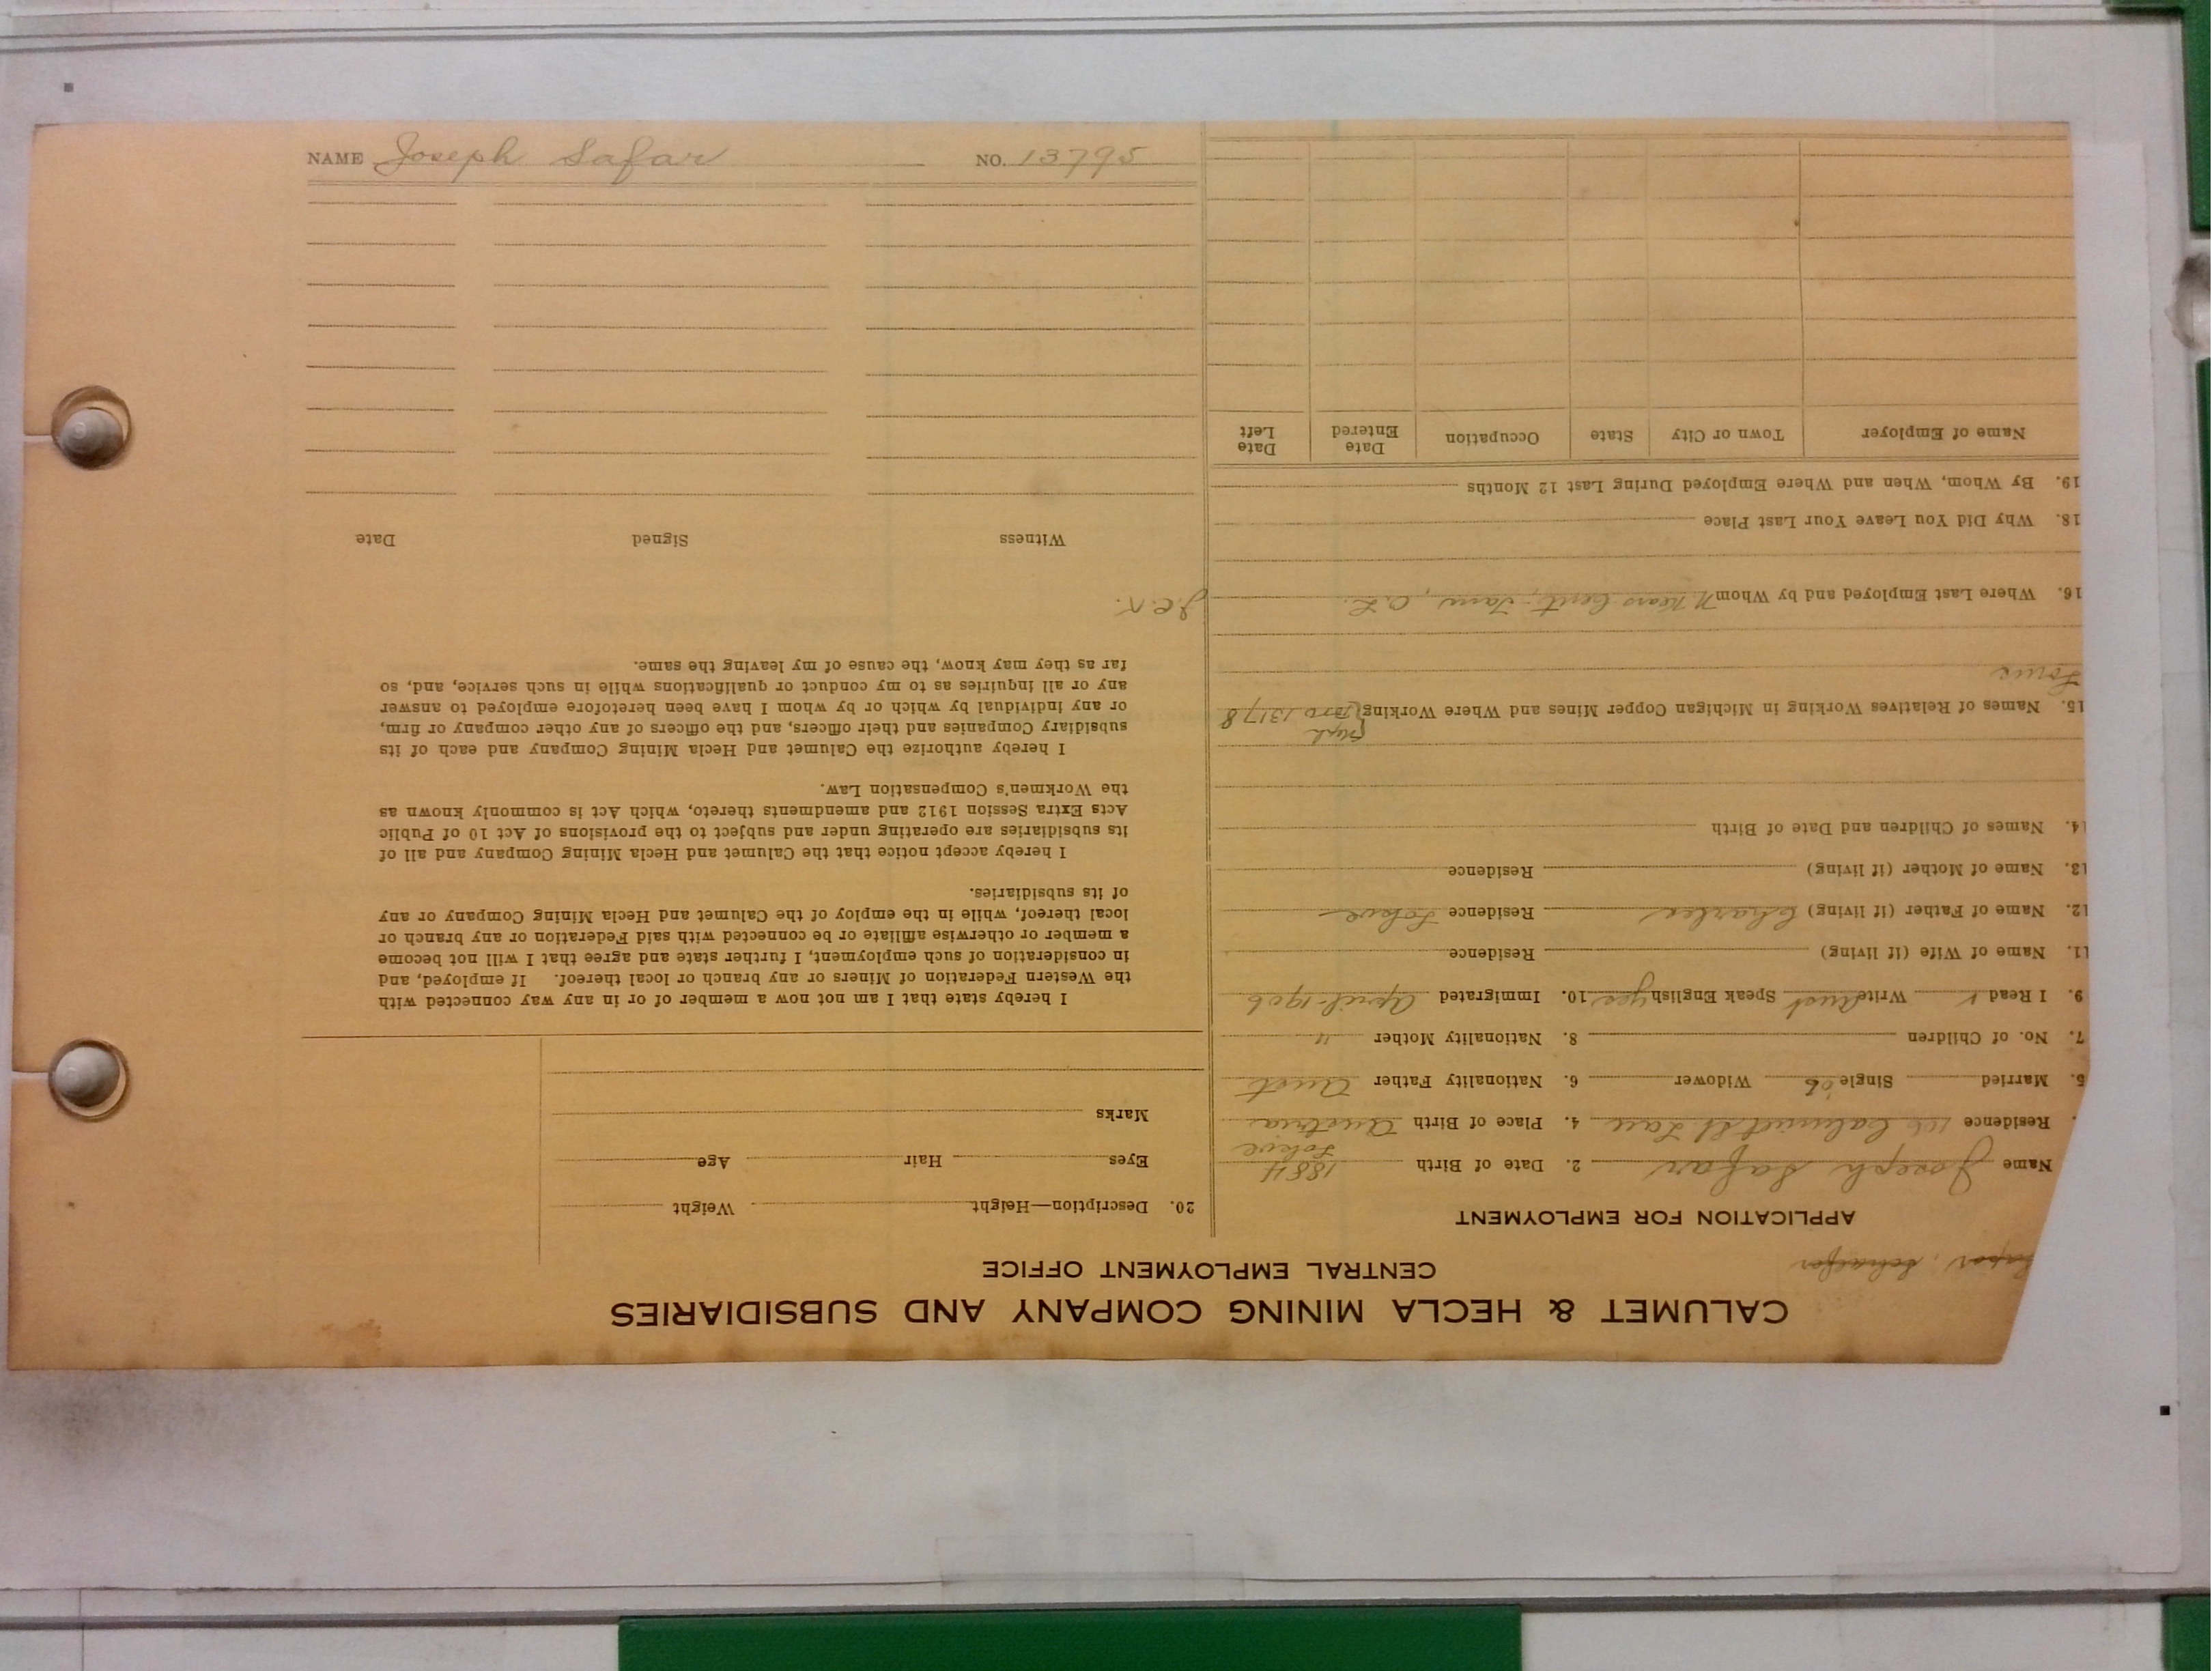 CALUMET & HECLA MINING COMPANY AND SUBSIDIARIES
CENTRAL EMPLOYMENT OFFICE
Schaefer
APPLICATION FOR EMPLOYMENT
Name Joseph Safar 2. Date of Birth 1884
Residence Calumet St. 4. Place of Birth Austria
5. Married Single Widower 6. Nationality Father Aust
7. No. of Children 8. Nationality Mother "
9. I Read Write Aust Speak English yes 10. Immigrated April-1906
11. Name of Wife (if living) Residence
12. Name of Father (if living) Charles Residence
13. Name of Mother (if living) Residence
14. Names of Children and Date of Birth
15. Names of Relatives Working in Michigan Copper Mines and Where Working Bro 13178
16. Where Last Employed and by Whom
18. Why Did You Leave Your Last Place
19. By Whom, When and Where Employed During Last 12 Months
Name of Employer Town or City State Occupation Date Entered Date Left
20. Description—Height Weight
Eyes Hair Age
Marks
I hereby state that I am not now a member of or in any way connected with
the Western Federation of Miners or any branch or local thereof. If employed, and
in consideration of such employment, I further state and agree that I will not become
a member or otherwise affiliate or be connected with said Federation or any branch or
local thereof, while in the employ of the Calumet and Hecla Mining Company or any
of its subsidiaries.
I hereby accept notice that the Calumet and Hecla Mining Company and all of
its subsidiaries are operating under and subject to the provisions of Act 10 of Public
Acts Extra Session 1912 and amendments thereto, which Act is commonly known as
the Workmen's Compensation Law.
I hereby authorize the Calumet and Hecla Mining Company and each of its
subsidiary Companies and their officers, and the officers of any other company or firm,
or any individual by which or by whom I have been heretofore employed to answer
any or all inquiries as to my conduct or qualifications while in such service, and, so
far as they may know, the cause of my leaving the same.
Witness Signed Date
NAME Joseph Safar NO. 13795